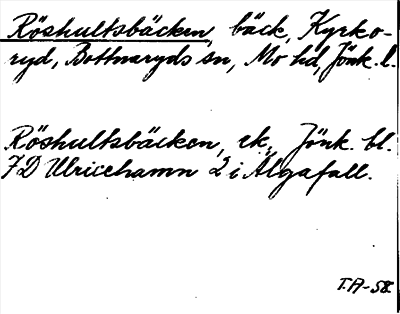 Röshultsbäcken, bäck, Kyrko-
ryd, Bottnaryds sn, Mo hd, Jönk. l.
Röshultsbäcken, ek. Jönk. bl.
7D Ulricehamn 2 i Älgafall.
T.A-58.